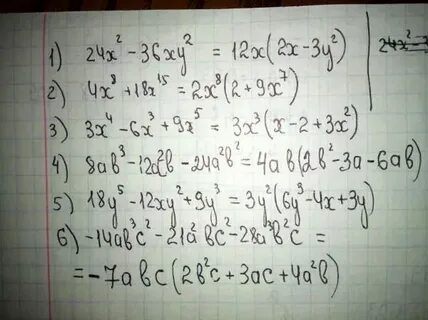 1) 24x² - 36xy² = 12x(2x - 3y²)
2) 4x⁸ + 18x¹⁵ = 2x⁸(2 + 9x⁷)
3) 3x⁴ - 6x³ + 9x⁵ = 3x³(x - 2 + 3x²)
4) 8ab³ - 12a²b - 24a²b² = 4ab(2b² - 3a - 6ab)
5) 18y⁵ - 12xy² + 9y³ = 3y²(6y³ - 4x + 3y)
6) -14ab³c² - 21a²bc² - 28a³b²c =
= -7abc(2b²c + 3ac + 4a²b)